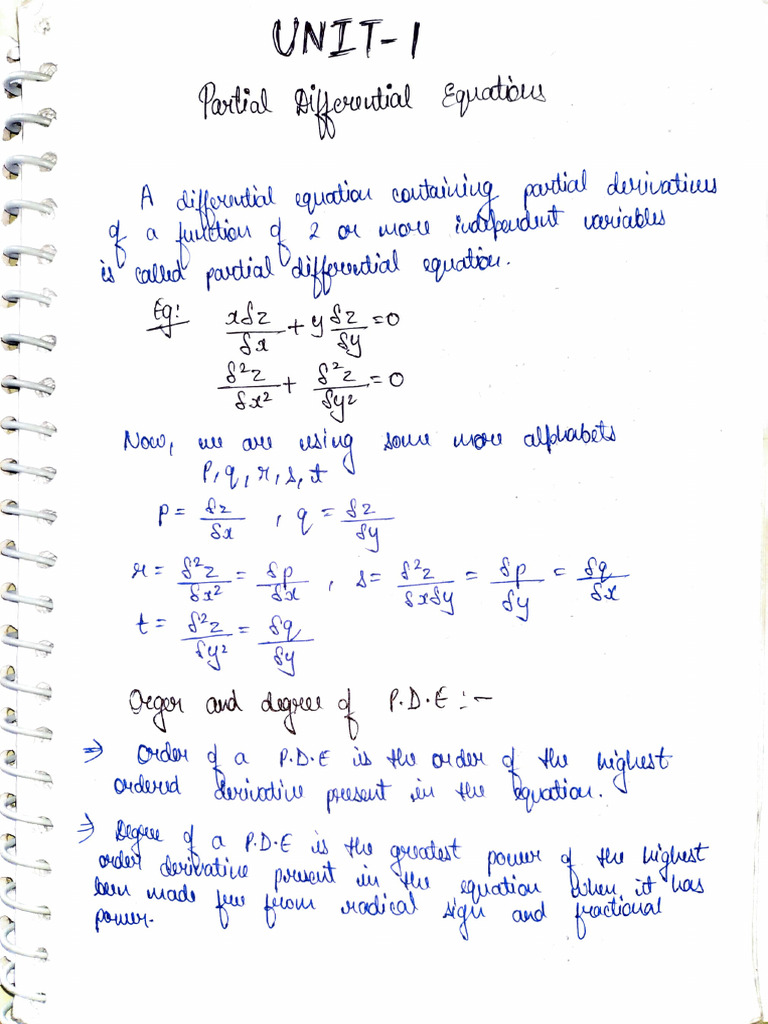 UNIT-1
Partial Differential Equations
A differential equation containing partial derivatives
of a function of 2 or more independent variables
is called partial differential equation.
Eg: xδz/δx + y δz/δy = 0
δ²z/δx² + δ²z/δy² = 0
Now, we are using some more alphabets
p, q, r, s, t
p = δz/δx , q = δz/δy
r = δ²z/δx² = δp/δx , s = δ²z/δxδy = δp/δy = δq/δx
t = δ²z/δy² = δq/δy
Orger and degree of P.D.E :-
⇒ Order of a P.D.E is the order of the highest
ordered derivative present in the equation.
⇒ Degree of a P.D.E is the greatest power of the highest
order derivative present in the equation when it has
been made free from radical sign and fractional
power.